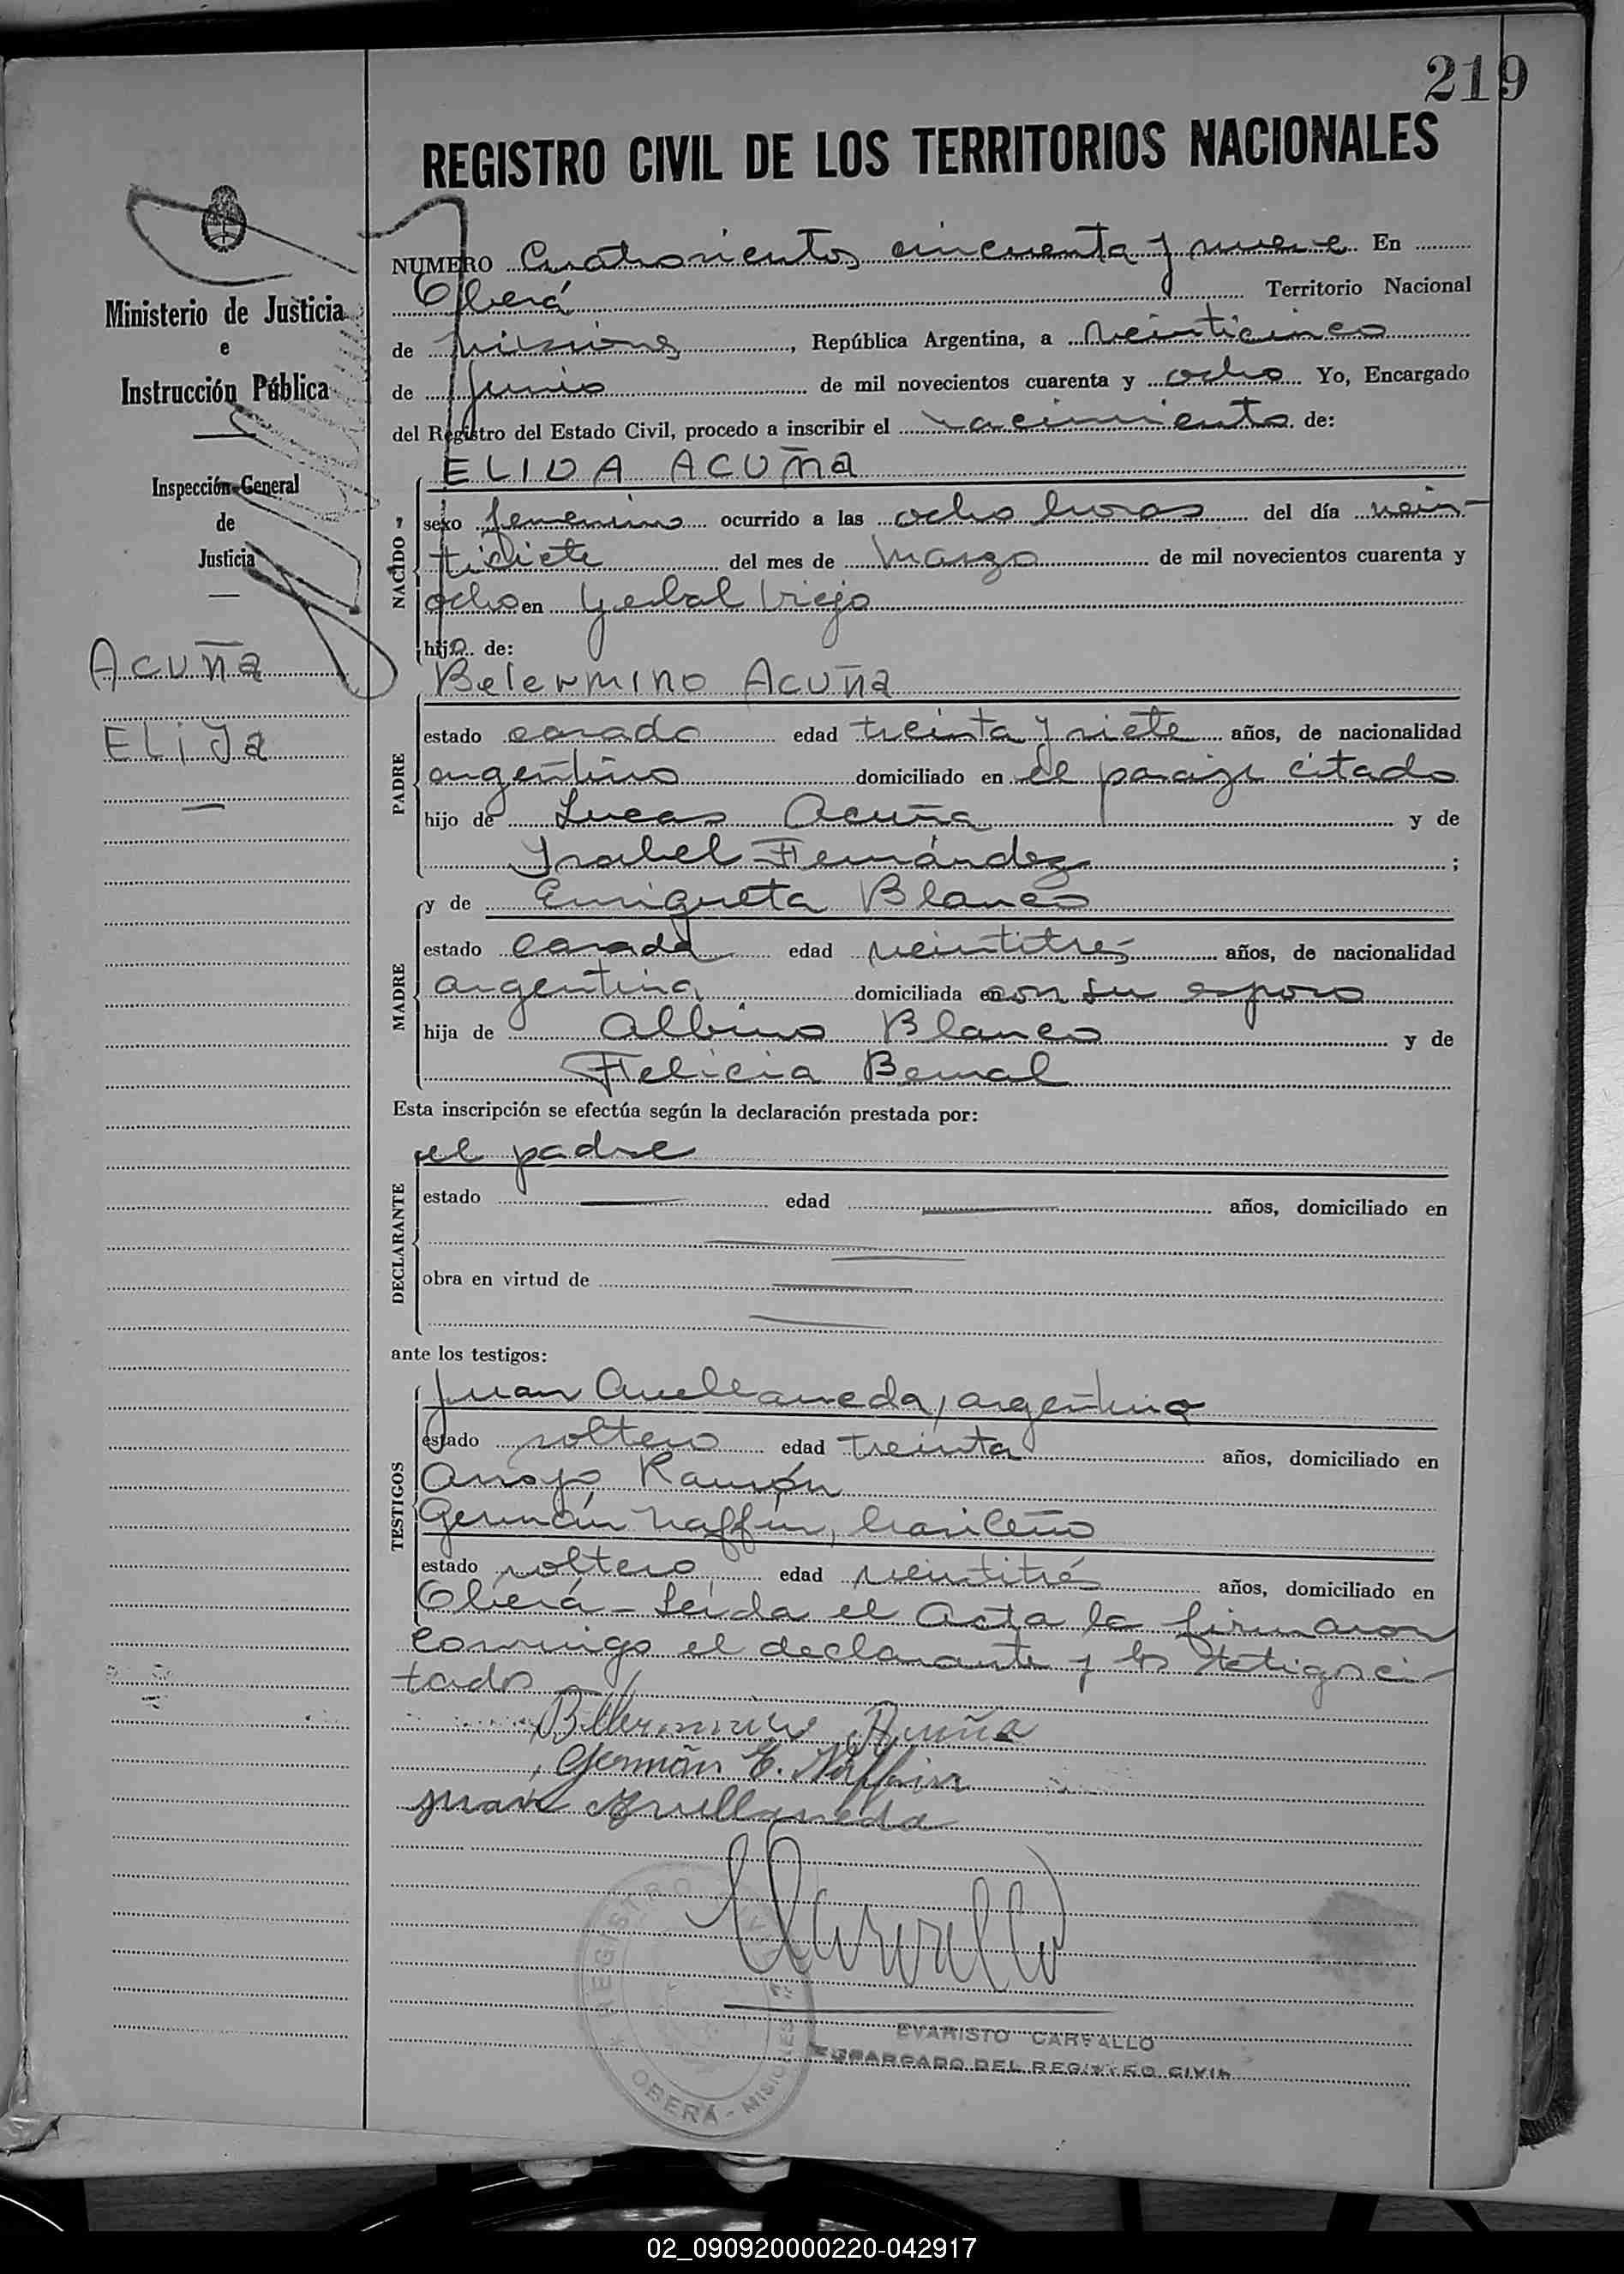 219
REGISTRO CIVIL DE LOS TERRITORIOS NACIONALES
Ministerio de Justicia
e
Instrucción Pública
Inspección General
de
Justicia
ACUÑA
ELiDa
NUMERO Cuatrocientos cincuenta y nueve En
Oberá Territorio Nacional
de Misiones, República Argentina, a veinticinco
de junio de mil novecientos cuarenta y ocho Yo, Encargado
del Registro del Estado Civil, procedo a inscribir el nacimiento de:
ELIDA ACUÑA
NACIDO
sexo femenino ocurrido a las ocho horas del día vein-
tisiete del mes de Marzo de mil novecientos cuarenta y
ocho en Yerbal Viejo
hija de:
Belermino Acuña
PADRE
estado casado edad treinta y siete años, de nacionalidad
argentino domiciliado en el paraje citado
hijo de Lucas Acuña y de
Isabel Fernández ;
MADRE
y de Enriqueta Blanco
estado casada edad veintitres años, de nacionalidad
argentina domiciliada en con su esposo
hija de Albino Blanco y de
Felicia Bernal
Esta inscripción se efectúa según la declaración prestada por:
el padre
DECLARANTE
estado edad años, domiciliado en
obra en virtud de
ante los testigos:
TESTIGOS
Juan Avellaneda, argentino
estado soltero edad treinta años, domiciliado en
Arroyo Ramón
Germán Naffin, brasileño
estado soltero edad veintitrés años, domiciliado en
Oberá - Leída el Acta la firmaron
conmigo el declarante y los testigos ci-
tados
Belermino Acuña
Germán E. Naffin
Juan Avellaneda
REGISTRO
OBERÁ - MISIONES
EVARISTO CARVALLO
ENCARGADO DEL REGISTRO CIVIL
02_090920000220-042917